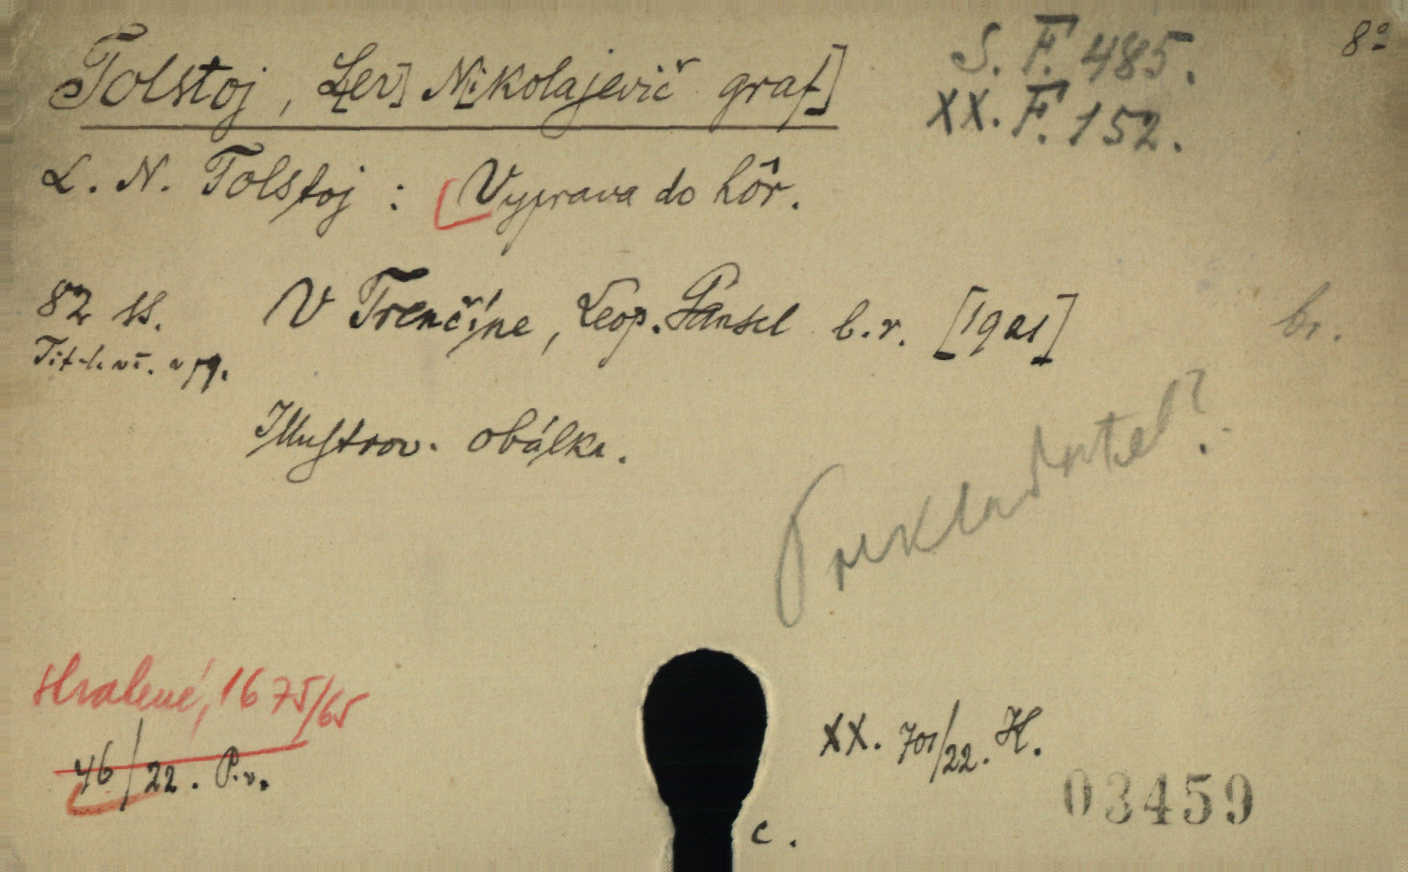 Tolstoj, L[ev] N[ikolajevič graf]
S. F. 485.
XX. F. 152.
8°
L. N. Tolstoj : Vyprava do hôr.
82 ss. V Trenčíne, Leop. Gansel b. r. [1921]
br.
Illustrov. obálka.
Prekladatel?
stratené, 1675/65
46/22. P.v.
XX. 701/22. H.
03459
c.